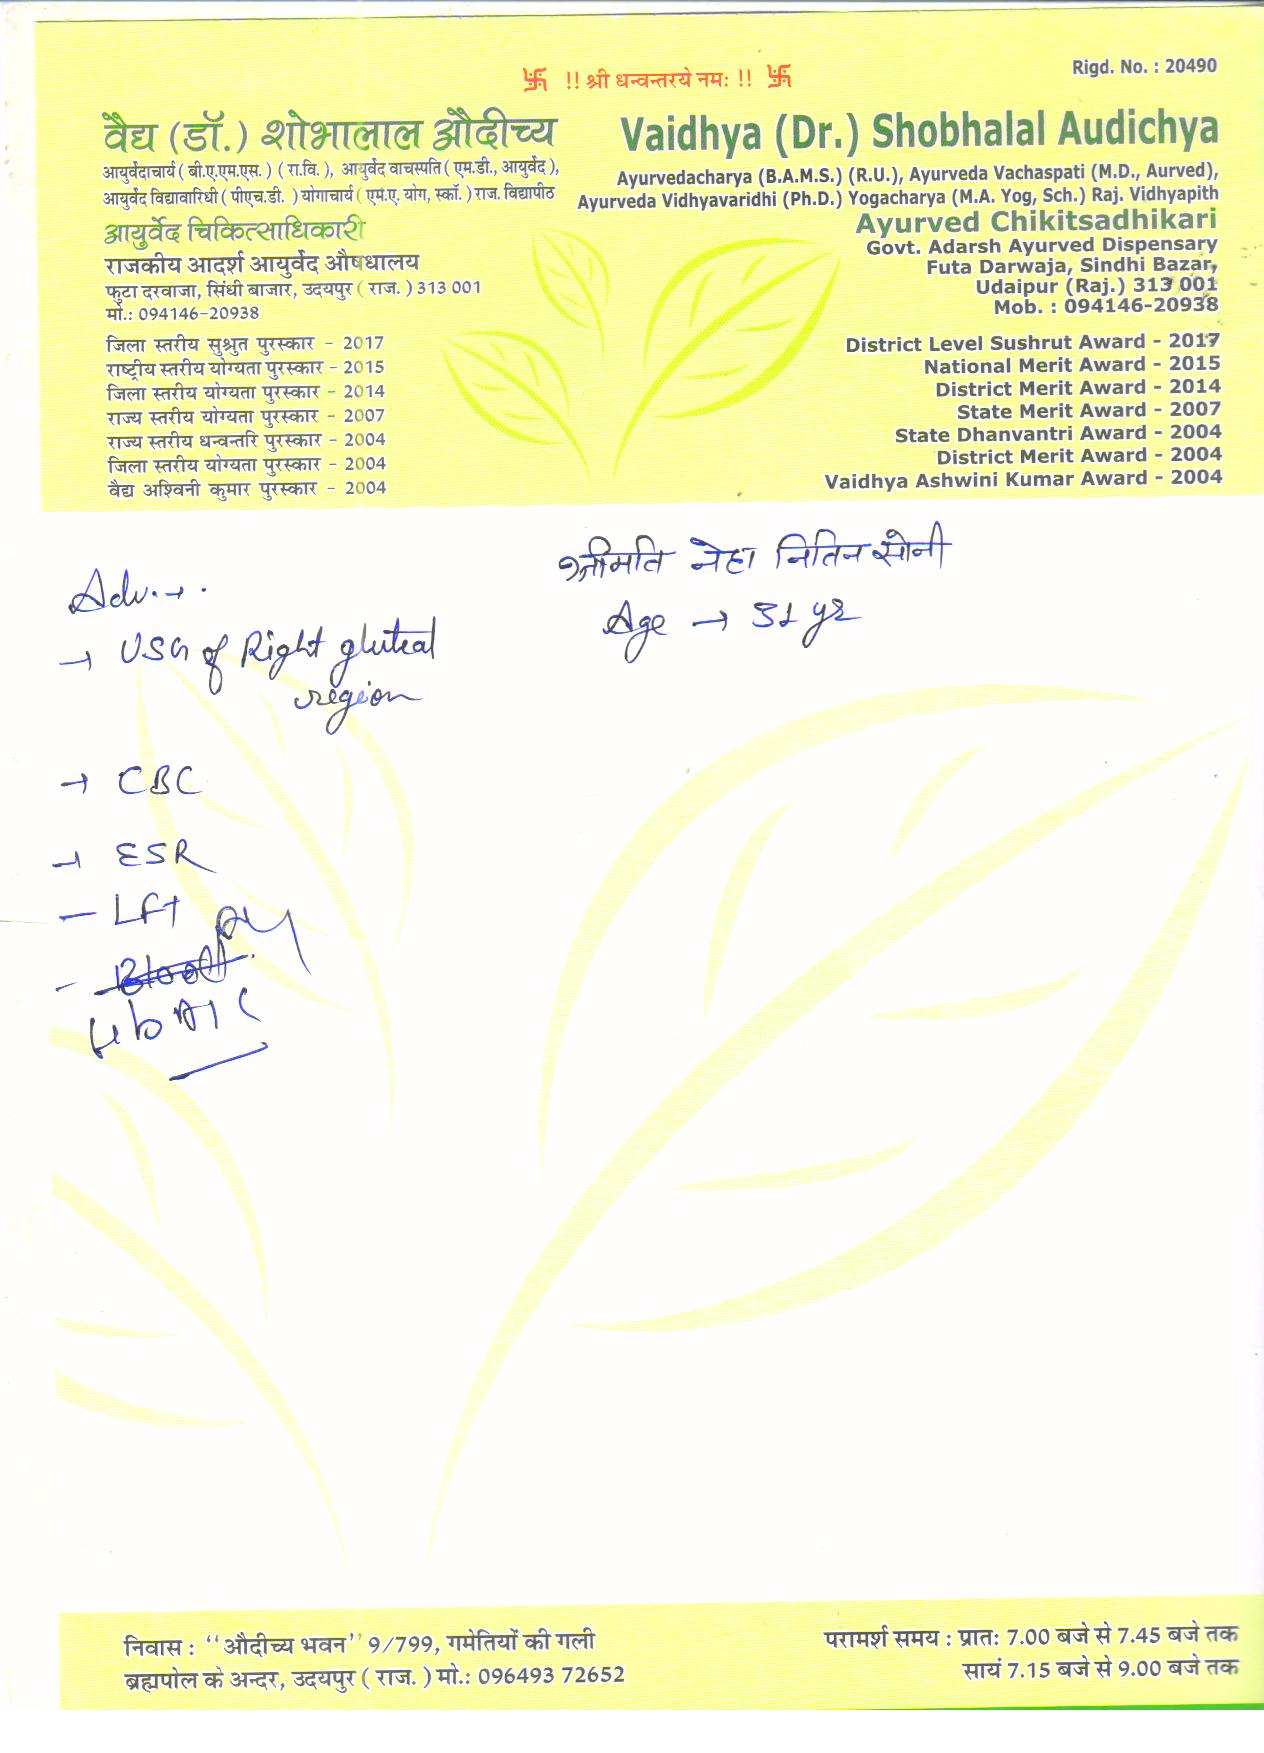 Rigd. No. : 20490
卐 !! श्री धन्वन्तरये नमः !! 卐
वैद्य (डॉ.) शोभालाल औदीच्य
आयुर्वेदाचार्य ( बी.ए.एम.एस. ) ( रा.वि. ), आयुर्वेद वाचस्पति ( एम.डी., आयुर्वेद ),
आयुर्वेद विद्यावारिधी ( पीएच.डी. ) योगाचार्य ( एम.ए. योग, स्कॉ. ) राज. विद्यापीठ
आयुर्वेद चिकित्साधिकारी
राजकीय आदर्श आयुर्वेद औषधालय
फुटा दरवाजा, सिंधी बाजार, उदयपुर ( राज. ) 313 001
मो.: 094146-20938
जिला स्तरीय सुश्रुत पुरस्कार - 2017
राष्ट्रीय स्तरीय योग्यता पुरस्कार - 2015
जिला स्तरीय योग्यता पुरस्कार - 2014
राज्य स्तरीय योग्यता पुरस्कार - 2007
राज्य स्तरीय धन्वन्तरि पुरस्कार - 2004
जिला स्तरीय योग्यता पुरस्कार - 2004
वैद्य अश्विनी कुमार पुरस्कार - 2004
Vaidhya (Dr.) Shobhalal Audichya
Ayurvedacharya (B.A.M.S.) (R.U.), Ayurveda Vachaspati (M.D., Aurved),
Ayurveda Vidhyavaridhi (Ph.D.) Yogacharya (M.A. Yog, Sch.) Raj. Vidhyapith
Ayurved Chikitsadhikari
Govt. Adarsh Ayurved Dispensary
Futa Darwaja, Sindhi Bazar,
Udaipur (Raj.) 313 001
Mob. : 094146-20938
District Level Sushrut Award - 2017
National Merit Award - 2015
District Merit Award - 2014
State Merit Award - 2007
State Dhanvantri Award - 2004
District Merit Award - 2004
Vaidhya Ashwini Kumar Award - 2004
श्रीमति नेहा नितिन सोनी
Age → 31 yr
Adv. →
→ USG of Right gluteal
region
→ CBC
→ ESR
— LFT
- Blood
HbA1C
निवास : ‘‘औदीच्य भवन’’ 9/799, गमेतियों की गली
ब्रह्मपोल के अन्दर, उदयपुर ( राज. ) मो.: 096493 72652
परामर्श समय : प्रातः 7.00 बजे से 7.45 बजे तक
सायं 7.15 बजे से 9.00 बजे तक